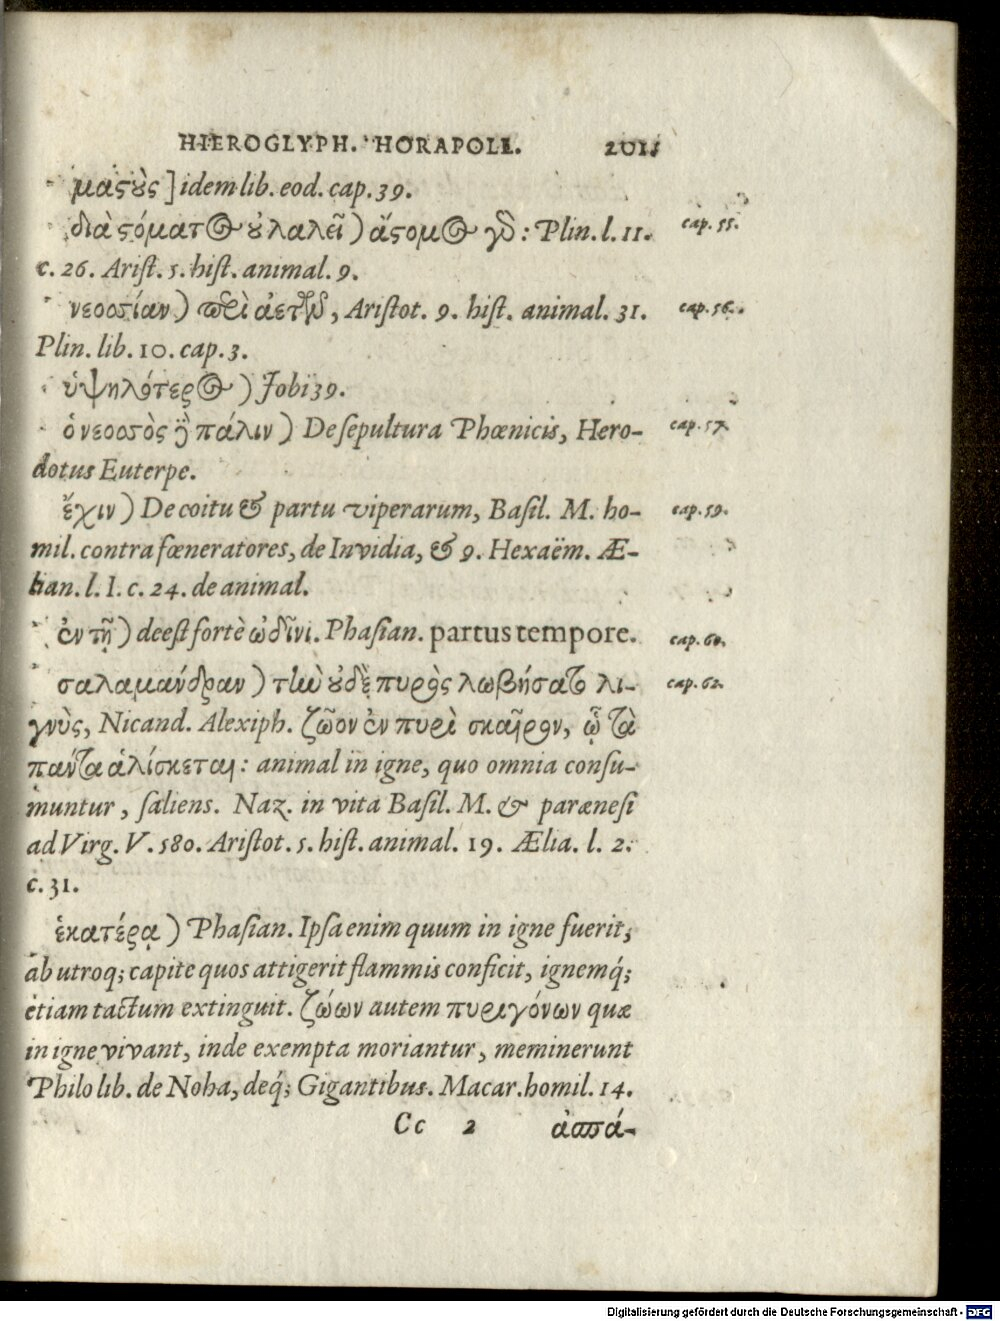 HIEROGLYPH. HORAPOLL. 201.
μαςοὺς] idem lib. eod. cap. 39.
διὰ ςόματος οὐ λαλεῖ) ἄςομος γὸ: Plin. l. 11. cap. 55.
c. 26. Arist. 5. hist. animal. 9.
νεοσσίαν) περὶ ἀετῶν, Aristot. 9. hist. animal. 31. cap. 56.
Plin. lib. 10. cap. 3.
ὑψηλότερος) Jobi 39.
ὁ νεοσσὸς ὃ πάλιν) De sepultura Phœnicis, Hero- cap. 57.
dotus Euterpe.
ἔχιν) De coitu & partu viperarum, Basil. M. ho- cap. 59.
mil. contra fœneratores, de Invidia, & 9. Hexaëm. Æ-
lian. l. I. c. 24. de animal.
ἐν τῇ) deest fortè ὠδῖνι. Phasian. partus tempore. cap. 60.
σαλαμάνδραν) τὴν οὐδὲ πυρὸς λωβήσατο λι- cap. 62.
γνὺς, Nicand. Alexiph. ζῶον ἐν πυρὶ σκαῖρον, ᾧ τὰ
πάντα ἁλίσκεται: animal in igne, quo omnia consu-
muntur, saliens. Naz. in vita Basil. M. & parænesi
ad Virg. V. 580. Aristot. 5. hist. animal. 19. Ælia. l. 2.
c. 31.
ἑκατέρᾳ) Phasian. Ipsa enim quum in igne fuerit,
ab utroq; capite quos attigerit flammis conficit, ignemq́;
etiam tactum extinguit. ζώων autem πυριγόνων quæ
in igne vivant, inde exempta moriantur, meminerunt
Philo lib. de Noha, deq́; Gigantibus. Macar. homil. 14.
Cc 2 ἀσπά-
Digitalisierung gefördert durch die Deutsche Forschungsgemeinschaft - DFG